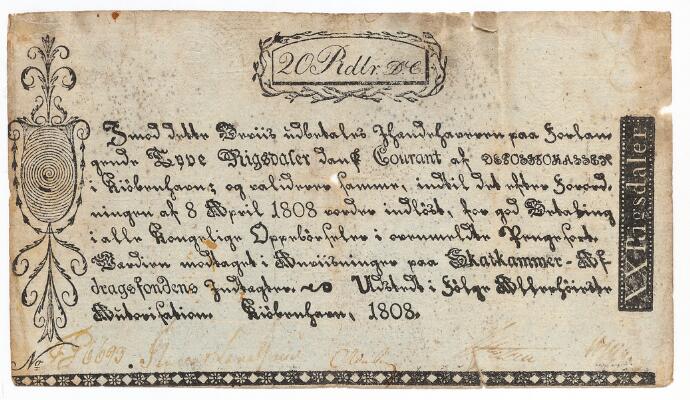 20 Rdlr. D. C.
Imod dette Beviis udbetales Ihændehaveren paa Forlan-
gende Tyve Rigsdaler dansk Courant af
i Kiöbenhavn; og validerer samme, indtil det efter Forord-
ningen af 8 April 1808 vorder indlöst, for god Betaling
i alle Kongelige Oppebörseler i ovenmeldte Pengesort.
Værdien modtaget i Anviisninger paa Skatkammer-Af-
dragsfondens Indtægter. Udstedt i Fölge Allerhöieste
Autorisation. Kiöbenhavn, 1808.
XX Rigsdaler
No